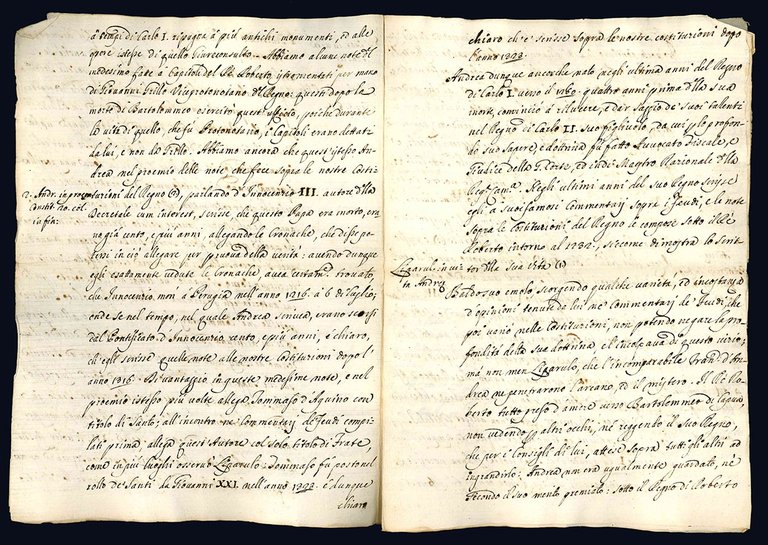 a' tempi di Carlo I. ripugna a' più antichi monumenti, ed alle
opere istesse di quello Giureconsulto. Abbiamo alcune note del
medesimo fatte a' Capitoli del Rè Roberto istromentati per mano
di Giovanni Grillo Viceprotonotario del Regno: questi dopo la
morte di Bartolomeo esercitò quest'ufficio, poiche durante
la vita di quello, che fu Protonotario, i Capitoli erano dettati
da lui, e non da Grillo. Abbiamo ancora che quest'istesso An
drea nel proemio delle note, che fece sopra le nostre Costi
tuzioni del Regno (2), parlando d'Innocenzio III. autore della
2. Andr. in proem.
Constit. no. col.
in fin:
Decretale cum interest, scrisse, che questo Papa era morto, era
no già cento, e più anni, allegando le Cronache, che disse po
tersi in ciò allegare per pruova della verità: avendo dunque
egli esattamente vedute le Cronache, avrà certam. trovato,
che Innocenzio morì a Perugia nell'anno 1216. a' 6. di Luglio;
onde se nel tempo, nel quale Andrea scrivea, erano scorsi
dal Pontificato d'Innocenzio cento, e più anni, è chiaro,
ch'egli scrisse quelle note alle nostre Costituzioni dopo l'
anno 1316. Di vantaggio in queste medesime note, e nel
proemio istesso più volte allega Tommaso d'Aquino con
titolo di Santo; all'incontro ne' Commentarj de' Feudi compi
lati prima, allega quest'Autore col solo titolo di Frate,
come in più luoghi osservò Liparulo: Tommaso fu posto nel
rollo de' Santi da Giovanni XXI. nell'anno 1323. è dunque
chiaro
chiaro ch'e' scrisse sopra le nostre Costituzioni dopo
l'anno 1323.
Andrea dunque ancorche nato negli ultimi anni del Regno
di Carlo I. verso il 1280. quattro anni prima della sua
morte, cominciò a rilucere, e dar saggio de' suoi talenti
nel Regno di Carlo II. suo figliuolo, da cui p lo profon
do suo sapere, e dottrina fu fatto Avvocato Fiscale, e
Giudice della G. Corte, ed indi Maestro Razionale della
Negli ultimi anni del suo Regno scrisse
egli i suoi famosi Commentarj sopra i Feudi, e le note
sopra le Costituzioni del Regno le compose sotto il Rè
Roberto intorno al siccome dimostra lo Scrit
tor della sua Vita (1)
Liparul. in vi
ta Andr.
Baldo suo emolo, scorgendo qualche varietà, ed incostanza
d'opinioni tenute da lui ne' Commentarj de' Feudi, che
poi variò nelle Costituzioni, non potendo negare la pro
fondità della sua dottrina di questo vizio;
mà non men Liparulo, che l'incomparabile Franc. d'An
drea ne penetrarono l'arcano, ed il mistero. Il Rè Ro
berto tutto preso d'amore verso Bartolommeo di Capua,
non vedendo p altri occhi, nè reggendo il suo Regno,
che per i Consigli di lui, attese sopra tutti gli altri ad
ingrandirlo: Andrea non era ugualmente guardato, nè
secondo il suo merito premiato: sotto il Regno di Roberto